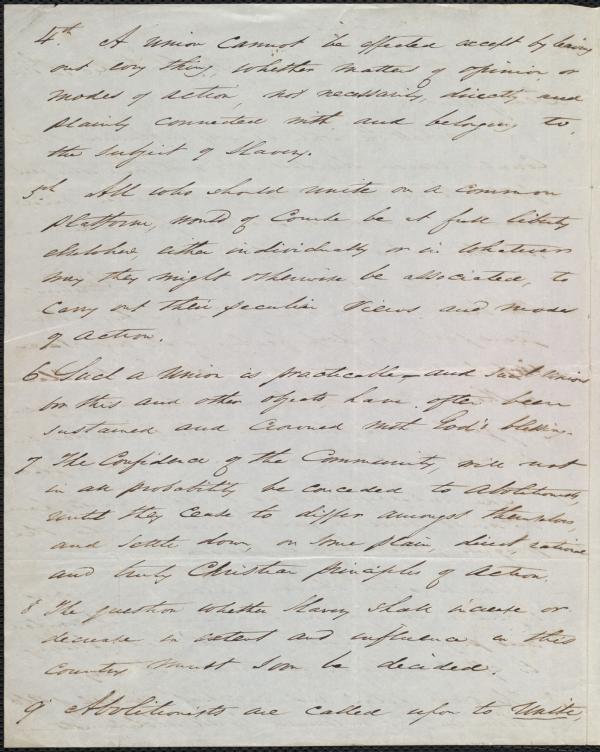 4th. A union cannot be effected accept by leaving
out every thing, whether matters of opinion or
modes of action, not necessarily, directly and
plainly connected with and belonging to,
the subject of Slavery.
5th. All who should unite on a common
platform, would of Course be at full liberty
elsewhere, either individually or in whatever
way they might otherwise be associated, to
carry out their peculiar views and modes
of action.
6 Such a Union is practicable, and such unions
for this and other objects, have often been
sustained and Crowned with God's blessing.
7 The Confidence of the Community, will not
in all probability be conceded to Abolitionists,
until they cease to differ amongst themselves
and settle down, on some plain, direct, rational
and truly Christian principles of action.
8 The question whether Slavery shall increase or
decrease in extent and influence in this
Country must soon be decided.
9 Abolitionists are called upon to Unite,